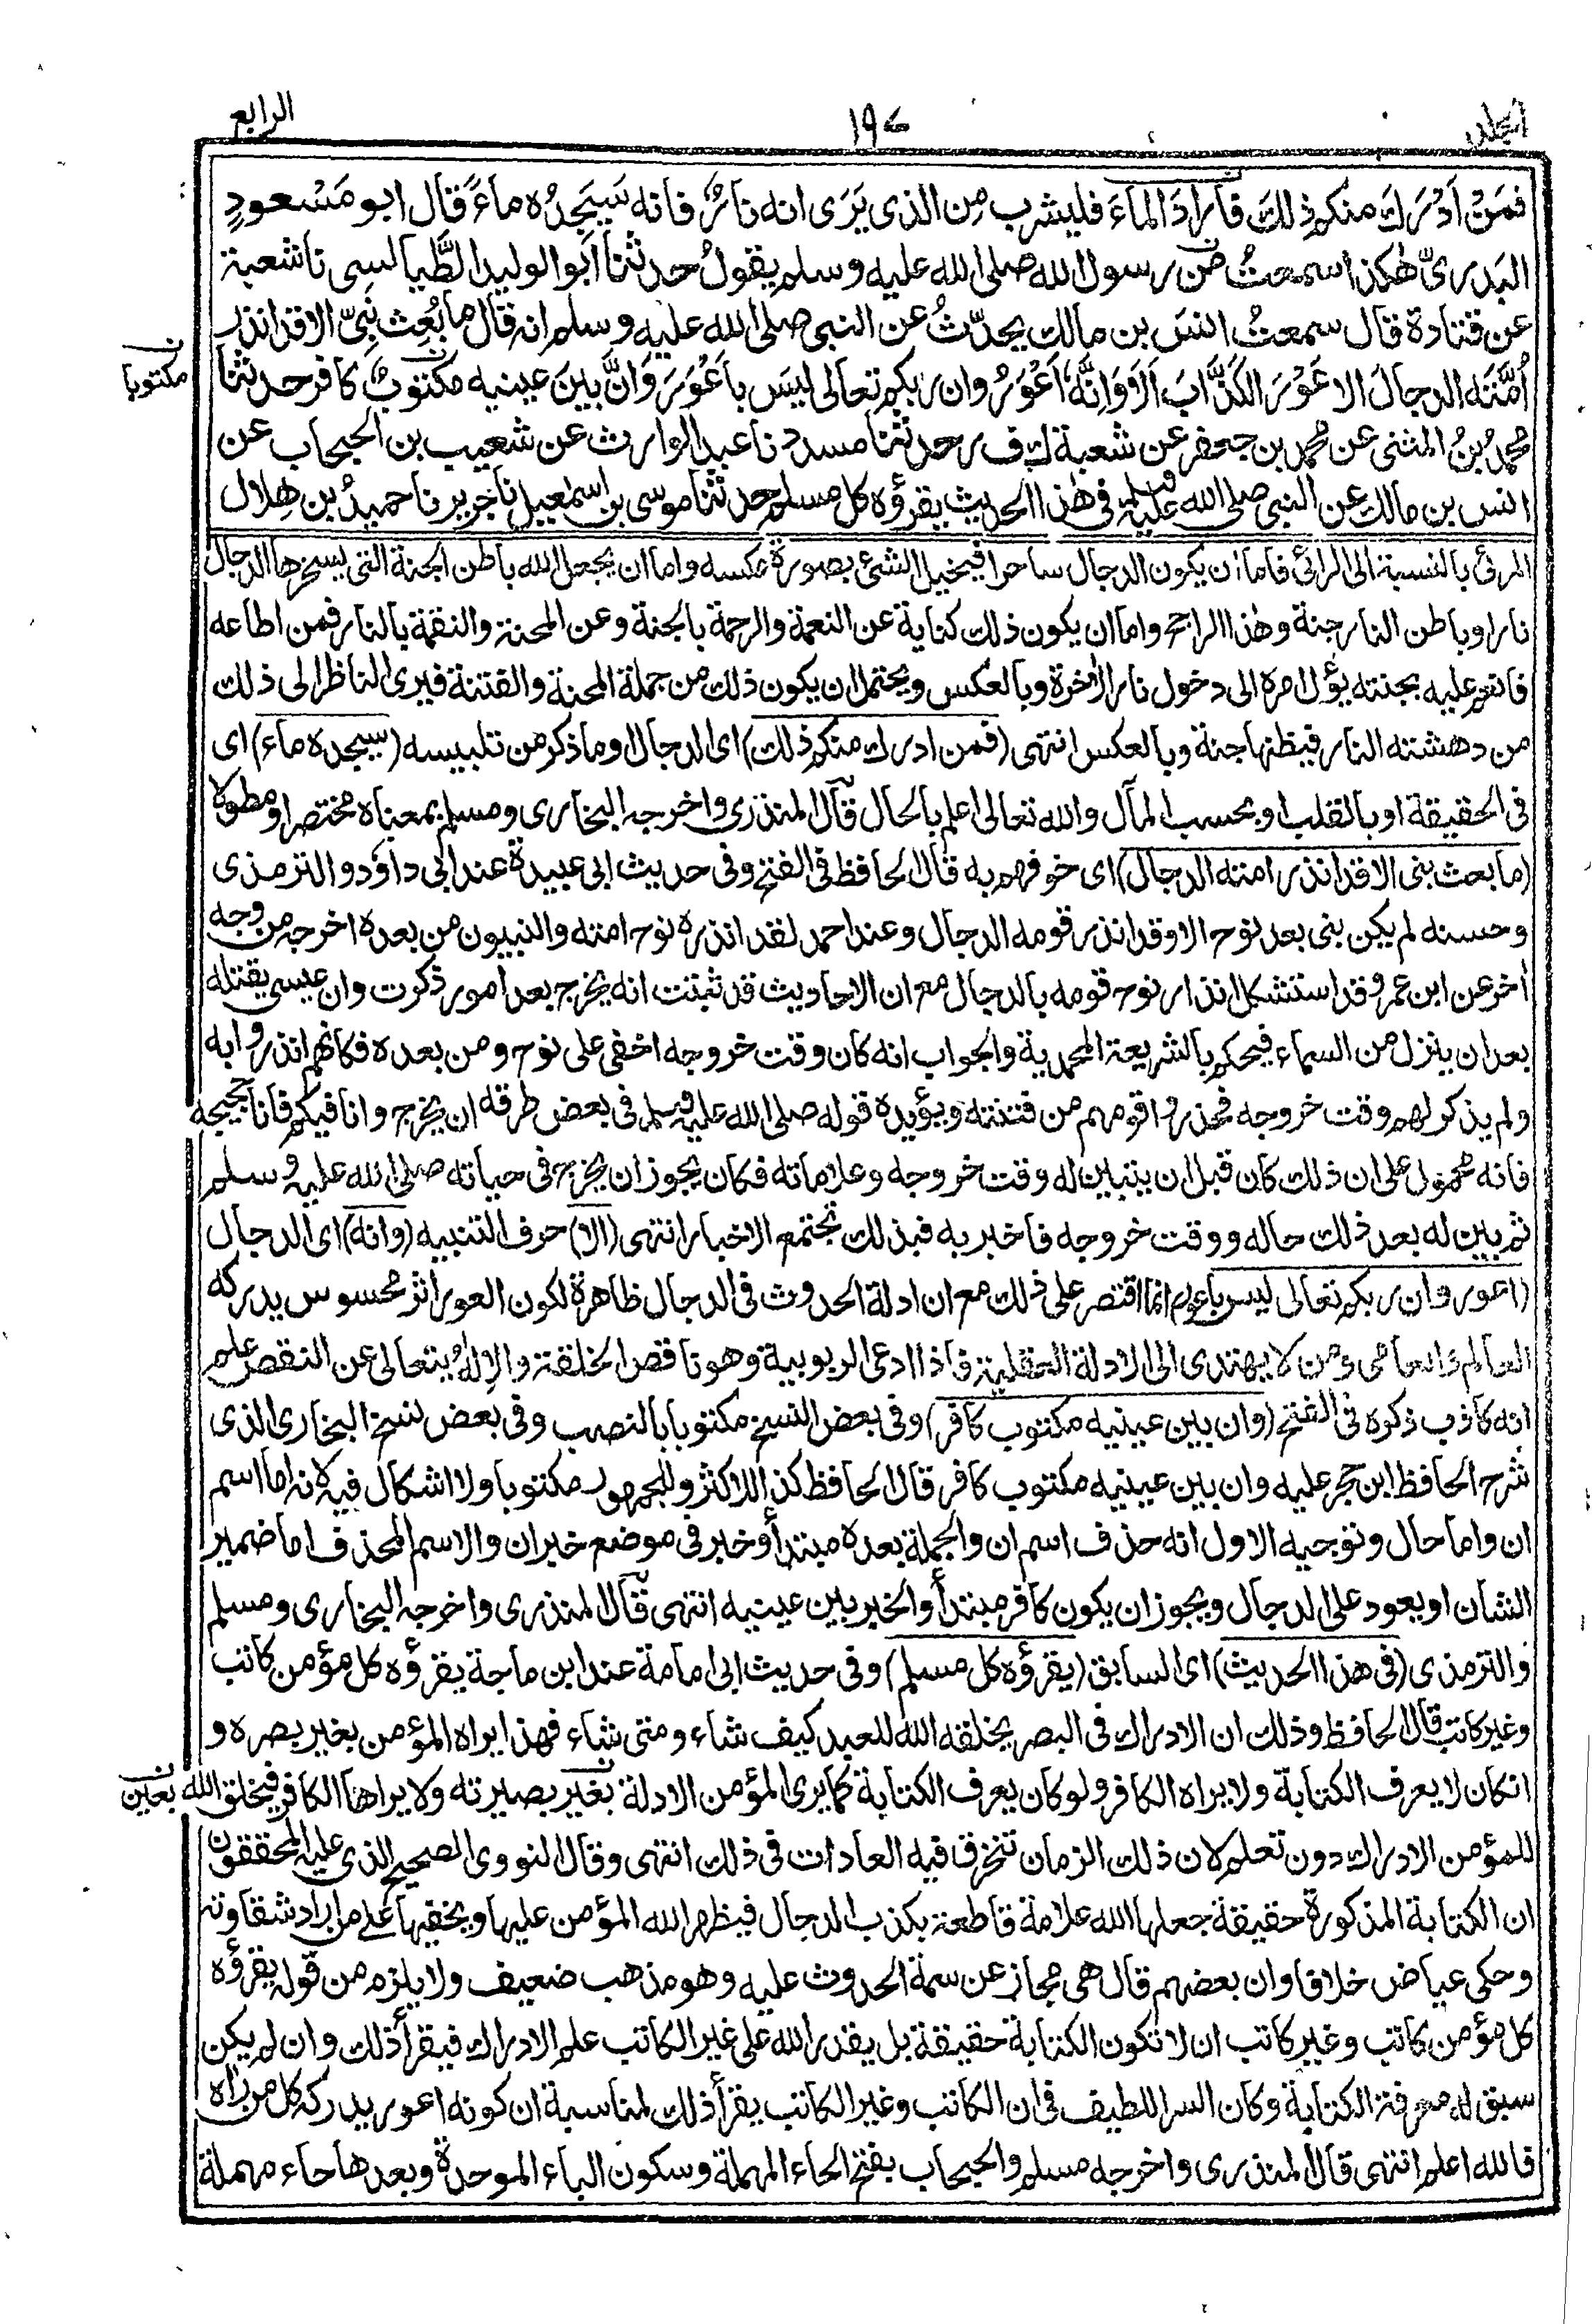 المجلد
١٩٧
الرابع
فمَنْ اَدْرَكَ منكم ذٰلك فاَرادَ الماءَ فليشرب مِن الذى يَرَى انه نارٌ فانه سَيَجدُه ماءً قال ابو مَسْعودٍ
البَدرىّ هٰكذا سمعتُ من رسول الله صلى الله عليه وسلم يقولُ حدثنا اَبوالوليد الطَّيالسِى نا شعبة
عن قتادة قال سمعتُ انسَ بن مالك يحدّثُ عن النبى صلى الله عليه وسلم انه قال ما بُعِث نَبِىّ الا قد انذر
اُمَّتَه الدجالَ الاعْوَرَ الكَذَّابَ اَلَا وَاِنَّه اَعْوَرُ وان ربكم تعالى ليسَ باَعْوَرَ وَانَّ بينَ عينيه مكتوبٌ كافر حدثنا
ن مكتوبا
محمدُ بنُ المثنى عن محمد بن جعفر عن شعبة ك ف ر حدثنا مسدد نا عبد الوارث عن شعيب بن الحبحاب عن
انس بن مالك عن النبى صلى الله عليه وسلم فى هٰذا الحديث يقرؤه كل مسلم حدثنا موسى بن اسمٰعيل نا جرير نا حميدُ بن هِلال
المرئى بالنسبة الى الرائى فاما ان يكون الدجال ساحرا فيخيل الشئ بصورة عكسه واما ان يجعل الله باطن الجنة التى يسخرها الدجال
نارا وباطن النار جنة وهٰذا الراجح واما ان يكون ذلك كناية عن النعمة والرحمة بالجنة وعن المحنة والنقمة بالنار فمن اطاعه
فانعم عليه بجنته يؤل امره الى دخول نار الاٰخرة وبالعكس ويحتمل ان يكون ذلك من جملة المحنة والفتنة فيرى الناظر الى ذلك
من دهشته النار فيظنها جنة وبالعكس انتهى (فمن ادرك منكم ذلك) اى الدجال او ما ذكر من تلبيسه (سيجده ماء) اى
فى الحقيقة او بالقلب او بحسب المآل والله تعالى اعلم بالحال قال المنذرى واخرجه البخارى ومسلم بمعناه مختصرا ومطولا
(ما بعث نبى الا قد انذر امته الدجال) اى خوفهم به قال الحافظ فى الفتح وفى حديث ابى عبيدة عند ابى داؤد والترمذى
وحسنه لم يكن نبى بعد نوح الا وقد انذر قومه الدجال وعند احمد لقد انذره نوح امته والنبيون من بعده اخرجه من وجه
اٰخر عن ابن عمر وقد استشكل انذار نوح قومه بالدجال مع ان الاحاديث قد ثبتت انه يخرج بعد امور ذكرت وان عيسى يقتله
بعد ان ينزل من السماء فيحكم بالشريعة المحمدية والجواب انه كان وقت خروجه اخفى على نوح ومن بعده فكانهم انذروا به
ولم يذكر لهم وقت خروجه فحذروا قومهم من فتنته ويؤيده قوله صلى الله عليه وسلم فى بعض طرقه ان يخرج وانا فيكم فانا حجيجه
فانه محمول على ان ذلك كان قبل ان يتبين له وقت خروجه وعلاماته فكان يجوز ان يخرج فى حياته صلى الله عليه وسلم
ثم بين له بعد ذلك حاله ووقت خروجه فاخبر به فبذلك تجتمع الاخبار انتهى (الا) حرف التنبيه (وانه) اى الدجال
(اعور وان ربكم تعالى ليس باعور) انما اقتصر على ذلك مع ان ادلة الحدوث فى الدجال ظاهرة لكون العور اثر محسوس يدركه
العالم والعامى ومن لا يهتدى الى الادلة العقلية فاذا ادعى الربوبية وهو ناقص الخلقة والاِلٰهُ يتعالى عن النقص علم
انه كاذب ذكره فى الفتح (وان بين عينيه مكتوب كافر) وفى بعض النسخ مكتوبا بالنصب وفى بعض نسخ البخارى الذى
شرح الحافظ ابن حجر عليه وان بين عينيه مكتوب كافر قال الحافظ كذا للاكثر وللجمهور مكتوبا ولا اشكال فيه لانه اما اسم
ان واما حال وتوجيه الاول انه حذف اسم ان والجملة بعده مبتدأ وخبر فى موضع خبر ان والاسم المحذوف اما ضمير
الشان او يعود على الدجال ويجوز ان يكون كافر مبتدأ والخبر بين عينيه انتهى قال المنذرى واخرجه البخارى ومسلم
والترمذى (فى هذا الحديث) اى السابق (يقرؤه كل مسلم) وفى حديث ابى امامة عند ابن ماجة يقرؤه كل مؤمن كاتب
وغير كاتب قال الحافظ وذلك ان الادراك فى البصر يخلقه الله للعبد كيف شاء ومتى شاء فهذا يراه المؤمن بغير بصره و
انكان لا يعرف الكتابة ولا يراه الكافر ولو كان يعرف الكتابة كما يرى المؤمن الادلة بغير بصيرته ولا يراها الكافر فيخلق الله
ن بعين
للمؤمن الادراك دون تعلم لان ذلك الزمان تنخرق فيه العادات فى ذلك انتهى وقال النووى الصحيح الذى عليه المحققون
ان الكتابة المذكورة حقيقة جعلها الله علامة قاطعة بكذب الدجال فيظهر الله المؤمن عليها ويخفيها على من اراد شقاوته
وحكى عياض خلافا وان بعضهم قال هى مجاز عن سمة الحدوث عليه وهو مذهب ضعيف ولا يلزم من قوله يقرؤه
كل مؤمن كاتب وغير كاتب ان لا تكون الكتابة حقيقة بل يقدر الله على غير الكاتب علم الادراك فيقرأ ذلك وان لم يكن
سبق له معرفة الكتابة وكان السر اللطيف فى ان الكاتب وغير الكاتب يقرأ ذلك لمناسبة ان كونه اعور يدركه كل من راٰه
فالله اعلم انتهى قال المنذرى واخرجه مسلم والحبحاب بفتح الحاء المهملة وسكون الباء الموحدة وبعدها حاء مهملة